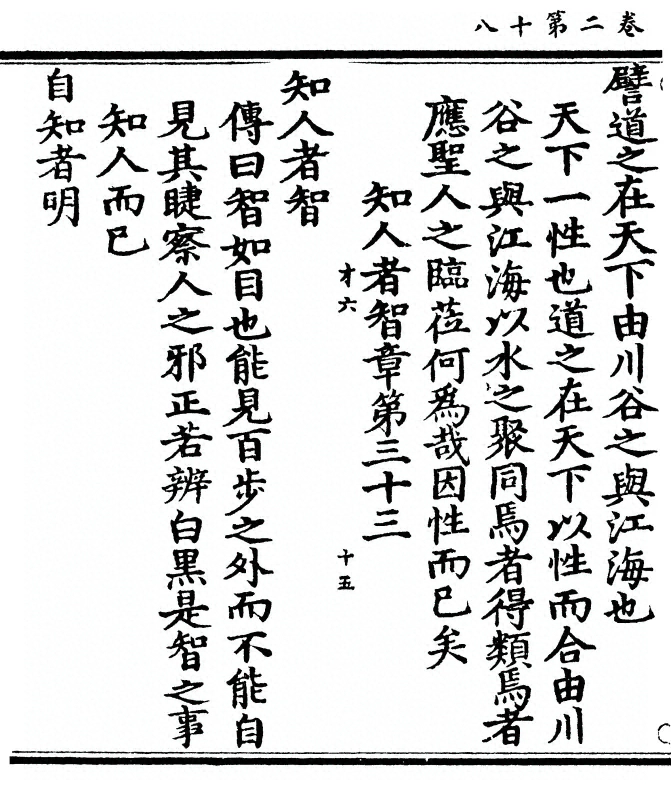 卷二第十八
譬道之在天下由川谷之與江海也
天下一性也道之在天下以性而合由川
谷之與江海以水之聚同焉者得類焉者
應聖人之臨莅何為哉因性而已矣
知人者智章第三十三
才六
十五
知人者智
傳曰智如目也能見百步之外而不能自
見其睫察人之邪正若辨白黒是智之事
知人而已
自知者明